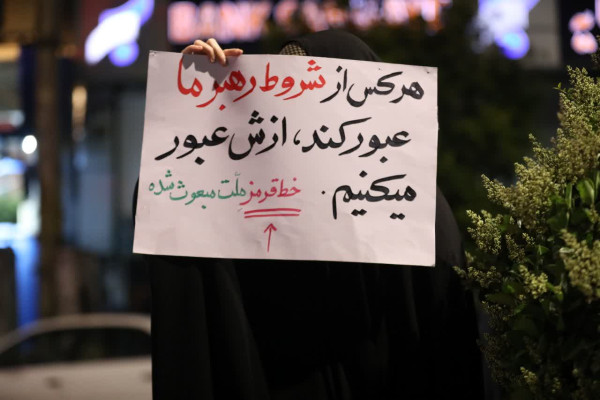 هرکس از شروط رهبر ما
عبور کند، ازش عبور
میکنیم.
خط قرمز ملّت مبعوث شده